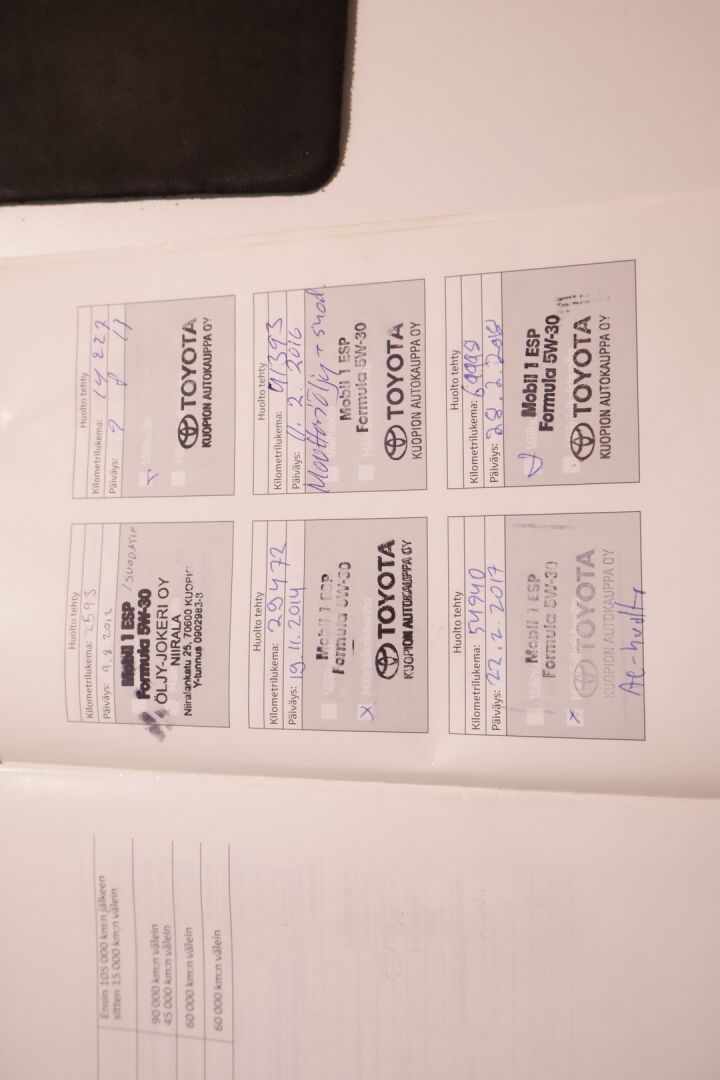 Ensin 105 000 km:n jälkeen
sitten 15 000 km:n välein
90 000 km:n välein
45 000 km:n välein
60 000 km:n välein
60 000 km:n välein
Huolto tehty
Kilometrilukema: 2593
Päiväys: 9.8.2012
/SUODATIN
Mobil 1 ESP
Formula 5W-30
ÖLJY-JOKERI OY
NIIRALA
Niiralankatu 25, 70600 KUOPIO
Y-tunnus 0902983-3
Huolto tehty
Kilometrilukema: 14 227
Päiväys: 9
TOYOTA
KUOPION AUTOKAUPPA OY
Huolto tehty
Kilometrilukema: 29472
Päiväys: 19.11.2014
Mobil 1 ESP
Formula 5W-30
x
TOYOTA
KUOPION AUTOKAUPPA OY
Huolto tehty
Kilometrilukema: 41393
Päiväys: 11.2.2016
Moottoriöljy + suod.
Mobil 1 ESP
Formula 5W-30
TOYOTA
KUOPION AUTOKAUPPA OY
Huolto tehty
Kilometrilukema: 54940
Päiväys: 22.2.2017
Mobil 1 ESP
Formula 5W-30
x
TOYOTA
KUOPION AUTOKAUPPA OY
Huolto tehty
Kilometrilukema: 69999
Päiväys: 28.2.2018
Mobil 1 ESP
Formula 5W-30
TOYOTA
KUOPION AUTOKAUPPA OY